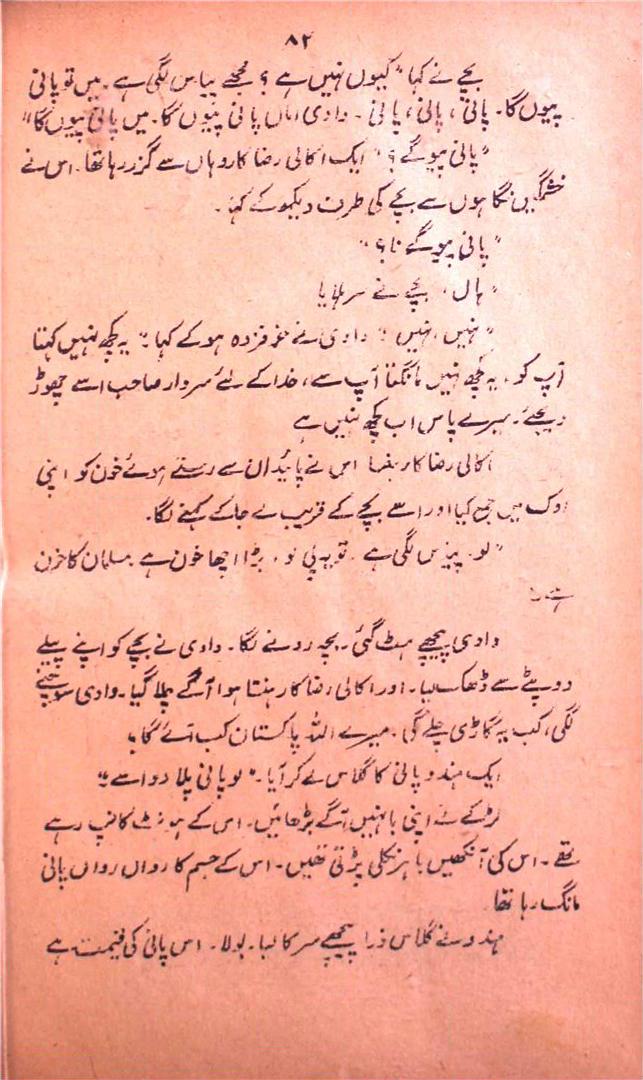 ۸۲
بچے نے کہا "کیوں نہیں ہے؟ مجھے پیاس لگی ہے۔ میں تو پانی
پیوں گا۔ پانی، پانی، پانی۔ دادی اماں پانی پیوں گا۔ میں پانی پیوں گا"
"پانی پیو گے؟" ایک اکالی رضا کار وہاں سے گزر رہا تھا۔ اس نے
خشمگیں نگاہوں سے بچے کی طرف دیکھ کے کہا۔
"پانی پیو گے نا؟"
"ہاں" بچے نے سر ہلایا
"نہیں، نہیں" دادی نے خوفزدہ ہو کے کہا۔ "یہ کچھ نہیں کہتا
آپ کو، یہ کچھ نہیں مانگتا آپ سے، خدا کے لئے سردار صاحب اسے چھوڑ
دیجئے۔ میرے پاس اب کچھ نہیں ہے
اکالی رضا کار ہنسا اس نے پائیدان سے رستے ہوئے خون کو اپنی
اوک میں جمع کیا اور اسے بچے کے قریب لے جا کے کہنے لگا۔
"لو۔ پیاس لگی ہے۔ تو یہ پی لو۔ بڑا اچھا خون ہے مسلمان کا خون
ہے"
دادی پیچھے ہٹ گئی۔ بچہ رونے لگا۔ دادی نے بچے کو اپنے پیلے
دوپٹے سے ڈھک لیا۔ اور اکالی رضا کار ہنستا ہوا آگے چلا گیا۔ دادی سوچنے
لگی، کب یہ گاڑی چلے گی۔ میرے اللہ پاکستان کب آئے گا؟
ایک ہندو پانی کا گلاس لے کر آیا۔ "لو پانی پلا دو اسے"
لڑکے نے اپنی بانہیں آگے بڑھائیں۔ اس کے ہونٹ کانپ رہے
تھے۔ اس کی آنکھیں باہر نکلی پڑتی تھیں۔ اس کے جسم کا رواں رواں پانی
مانگ رہا تھا۔
ہندو نے گلاس ذرا پیچھے سرکا لیا۔ بولا۔ اس پانی کی قیمت ہے